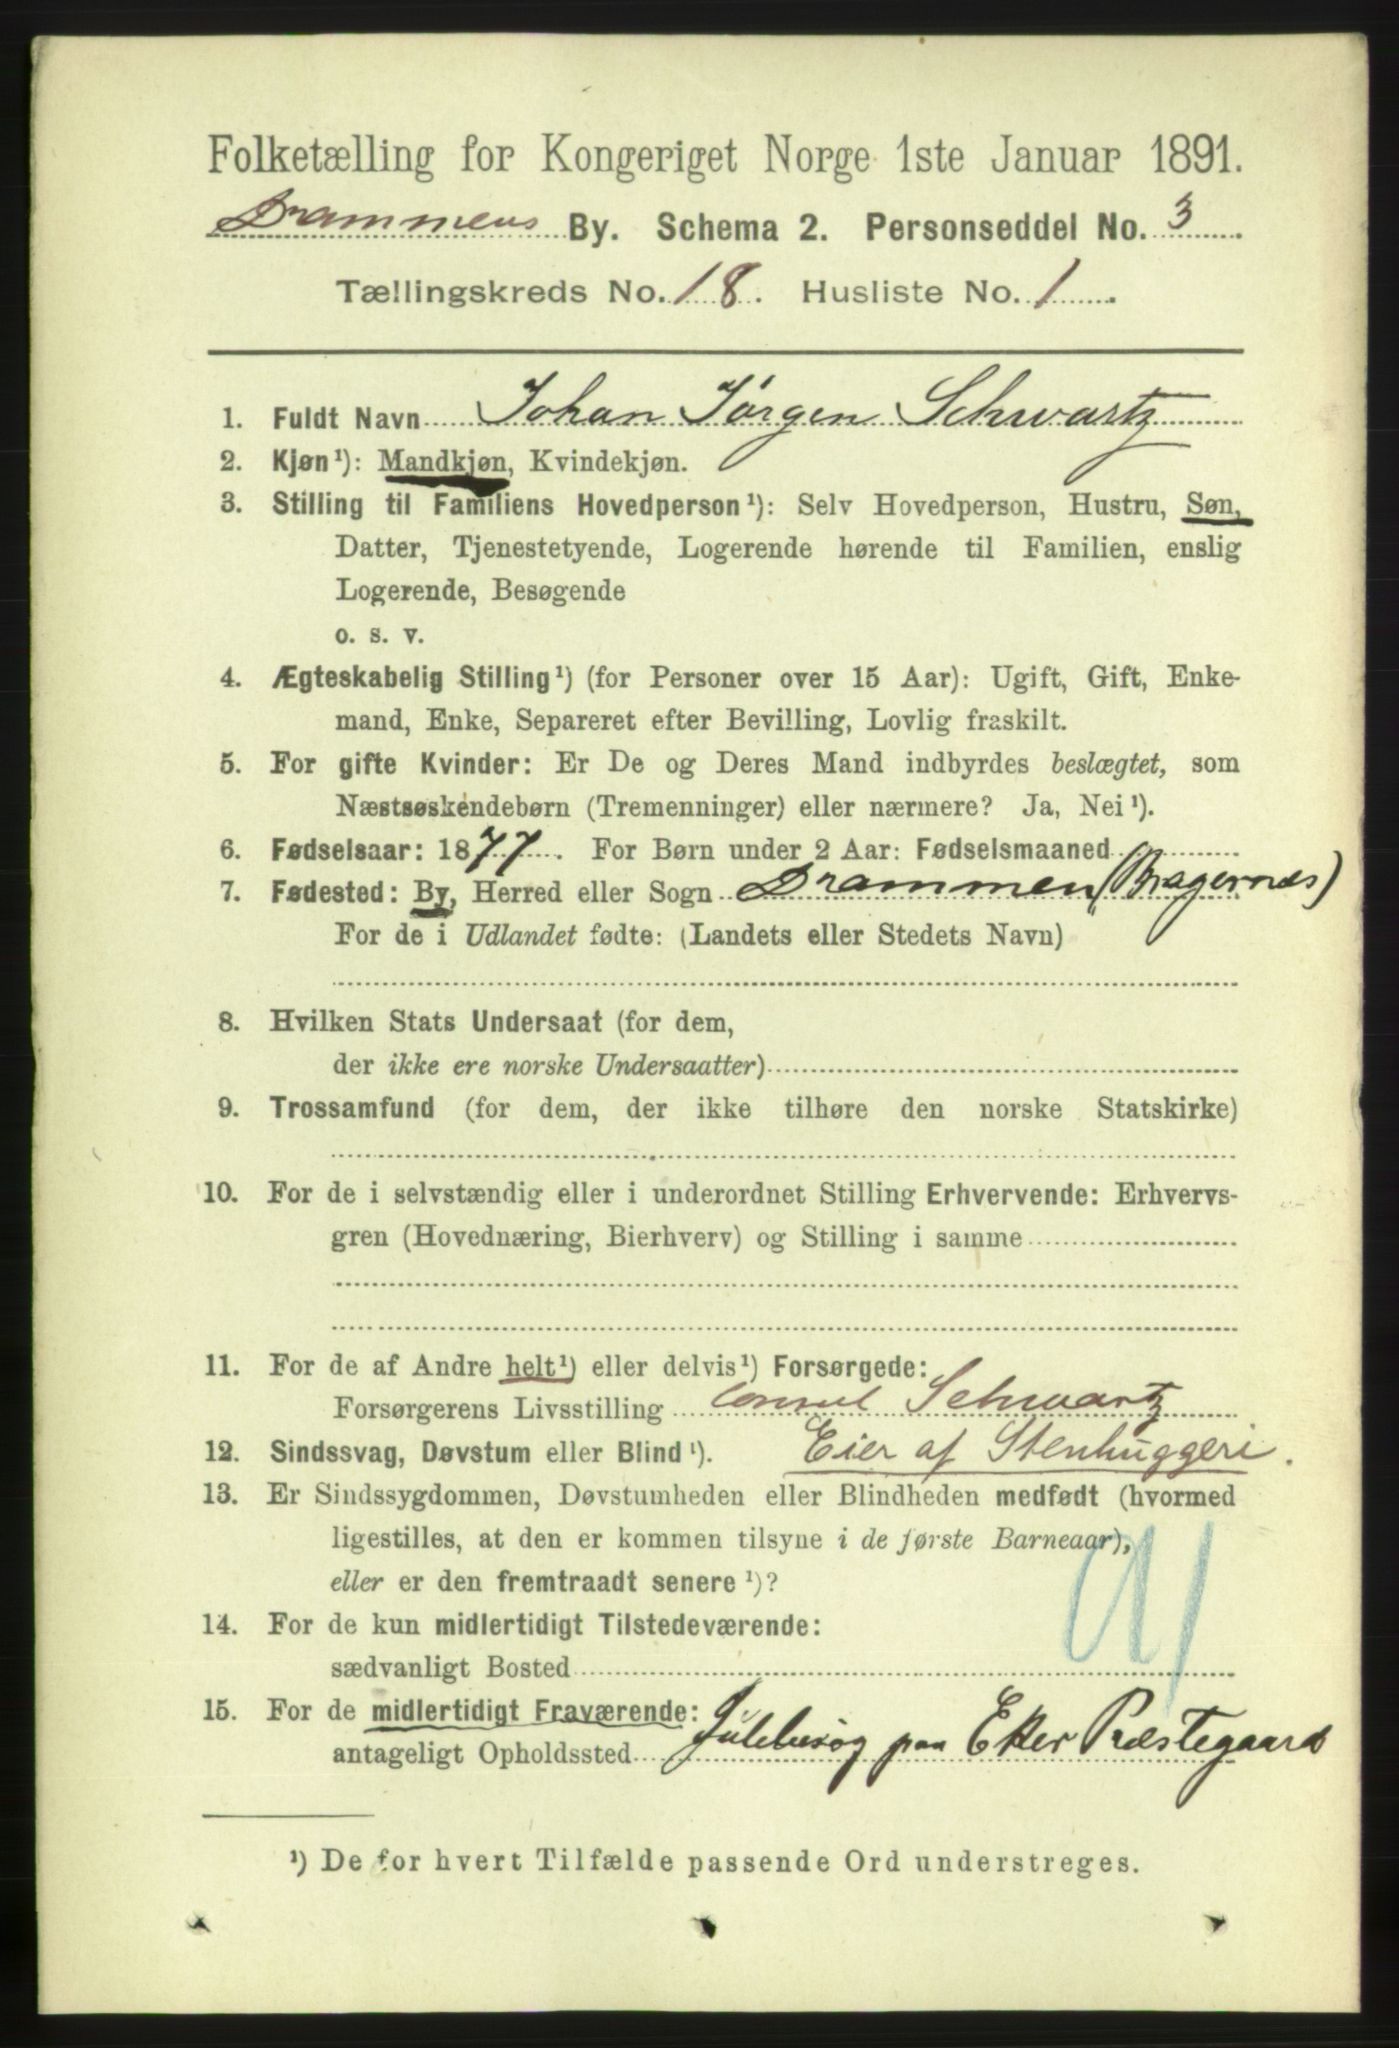 Folketælling for Kongeriget Norge 1ste Januar 1891.
Drammens By. Schema 2. Personseddel No. 3
Tællingskreds No. 18. Husliste No. 1.
1. Fuldt Navn Johan Jörgen Schwartz
2. Kjøn¹): Mandkjøn, Kvindekjøn.
3. Stilling til Familiens Hovedperson¹): Selv Hovedperson, Hustru, Søn,
Datter, Tjenestetyende, Logerende hørende til Familien, enslig
Logerende, Besøgende
o. s. v.
4. Ægteskabelig Stilling¹) (for Personer over 15 Aar): Ugift, Gift, Enke-
mand, Enke, Separeret efter Bevilling, Lovlig fraskilt.
5. For gifte Kvinder: Er De og Deres Mand indbyrdes beslægtet, som
Næstsøskendebørn (Tremenninger) eller nærmere? Ja, Nei¹).
6. Fødselsaar: 1877. For Børn under 2 Aar: Fødselsmaaned
7. Fødested: By, Herred eller Sogn Drammen (Bragernes)
For de i Udlandet fødte: (Landets eller Stedets Navn)
8. Hvilken Stats Undersaat (for dem,
der ikke ere norske Undersaatter)
9. Trossamfund (for dem, der ikke tilhøre den norske Statskirke)
10. For de i selvstændig eller i underordnet Stilling Erhvervende: Erhvervs-
gren (Hovednæring, Bierhverv) og Stilling i samme
11. For de af Andre helt¹) eller delvis¹) Forsørgede:
Forsørgerens Livsstilling Consul Schwartz
12. Sindssvag, Døvstum eller Blind¹). Eier af Stenhuggeri.
13. Er Sindssygdommen, Døvstumheden eller Blindheden medfødt (hvormed
ligestilles, at den er kommen tilsyne i de første Barneaar),
eller er den fremtraadt senere¹)?
91
14. For de kun midlertidigt Tilstedeværende:
sædvanligt Bosted
15. For de midlertidigt Fraværende:
antageligt Opholdssted Julebesög paa Eker Præstegaard
¹) De for hvert Tilfælde passende Ord understreges.